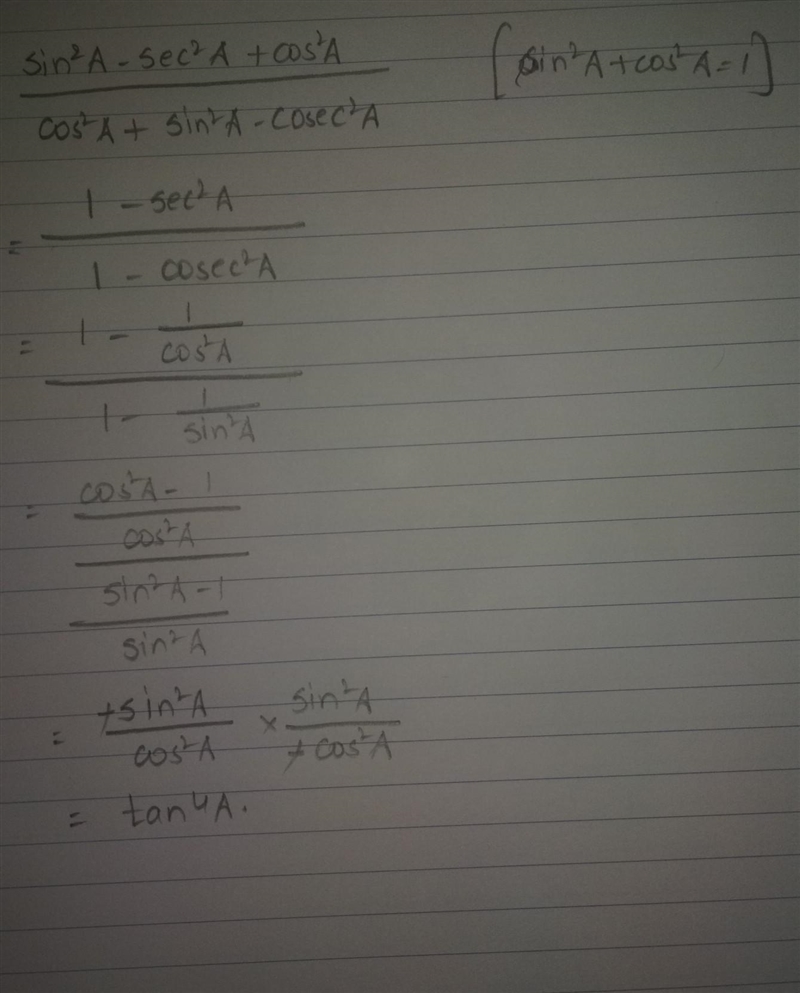 sin²A - sec²A + cos²A [sin²A + cos²A = 1]
cos²A + sin²A - cosec²A
1 - sec²A
=
1 - cosec²A
= 1 - 1
cos²A
1 - 1
sin²A
= cos²A - 1
cos²A
sin²A - 1
sin²A
= -sin²A × sin²A
cos²A -cos²A
= tan⁴A.